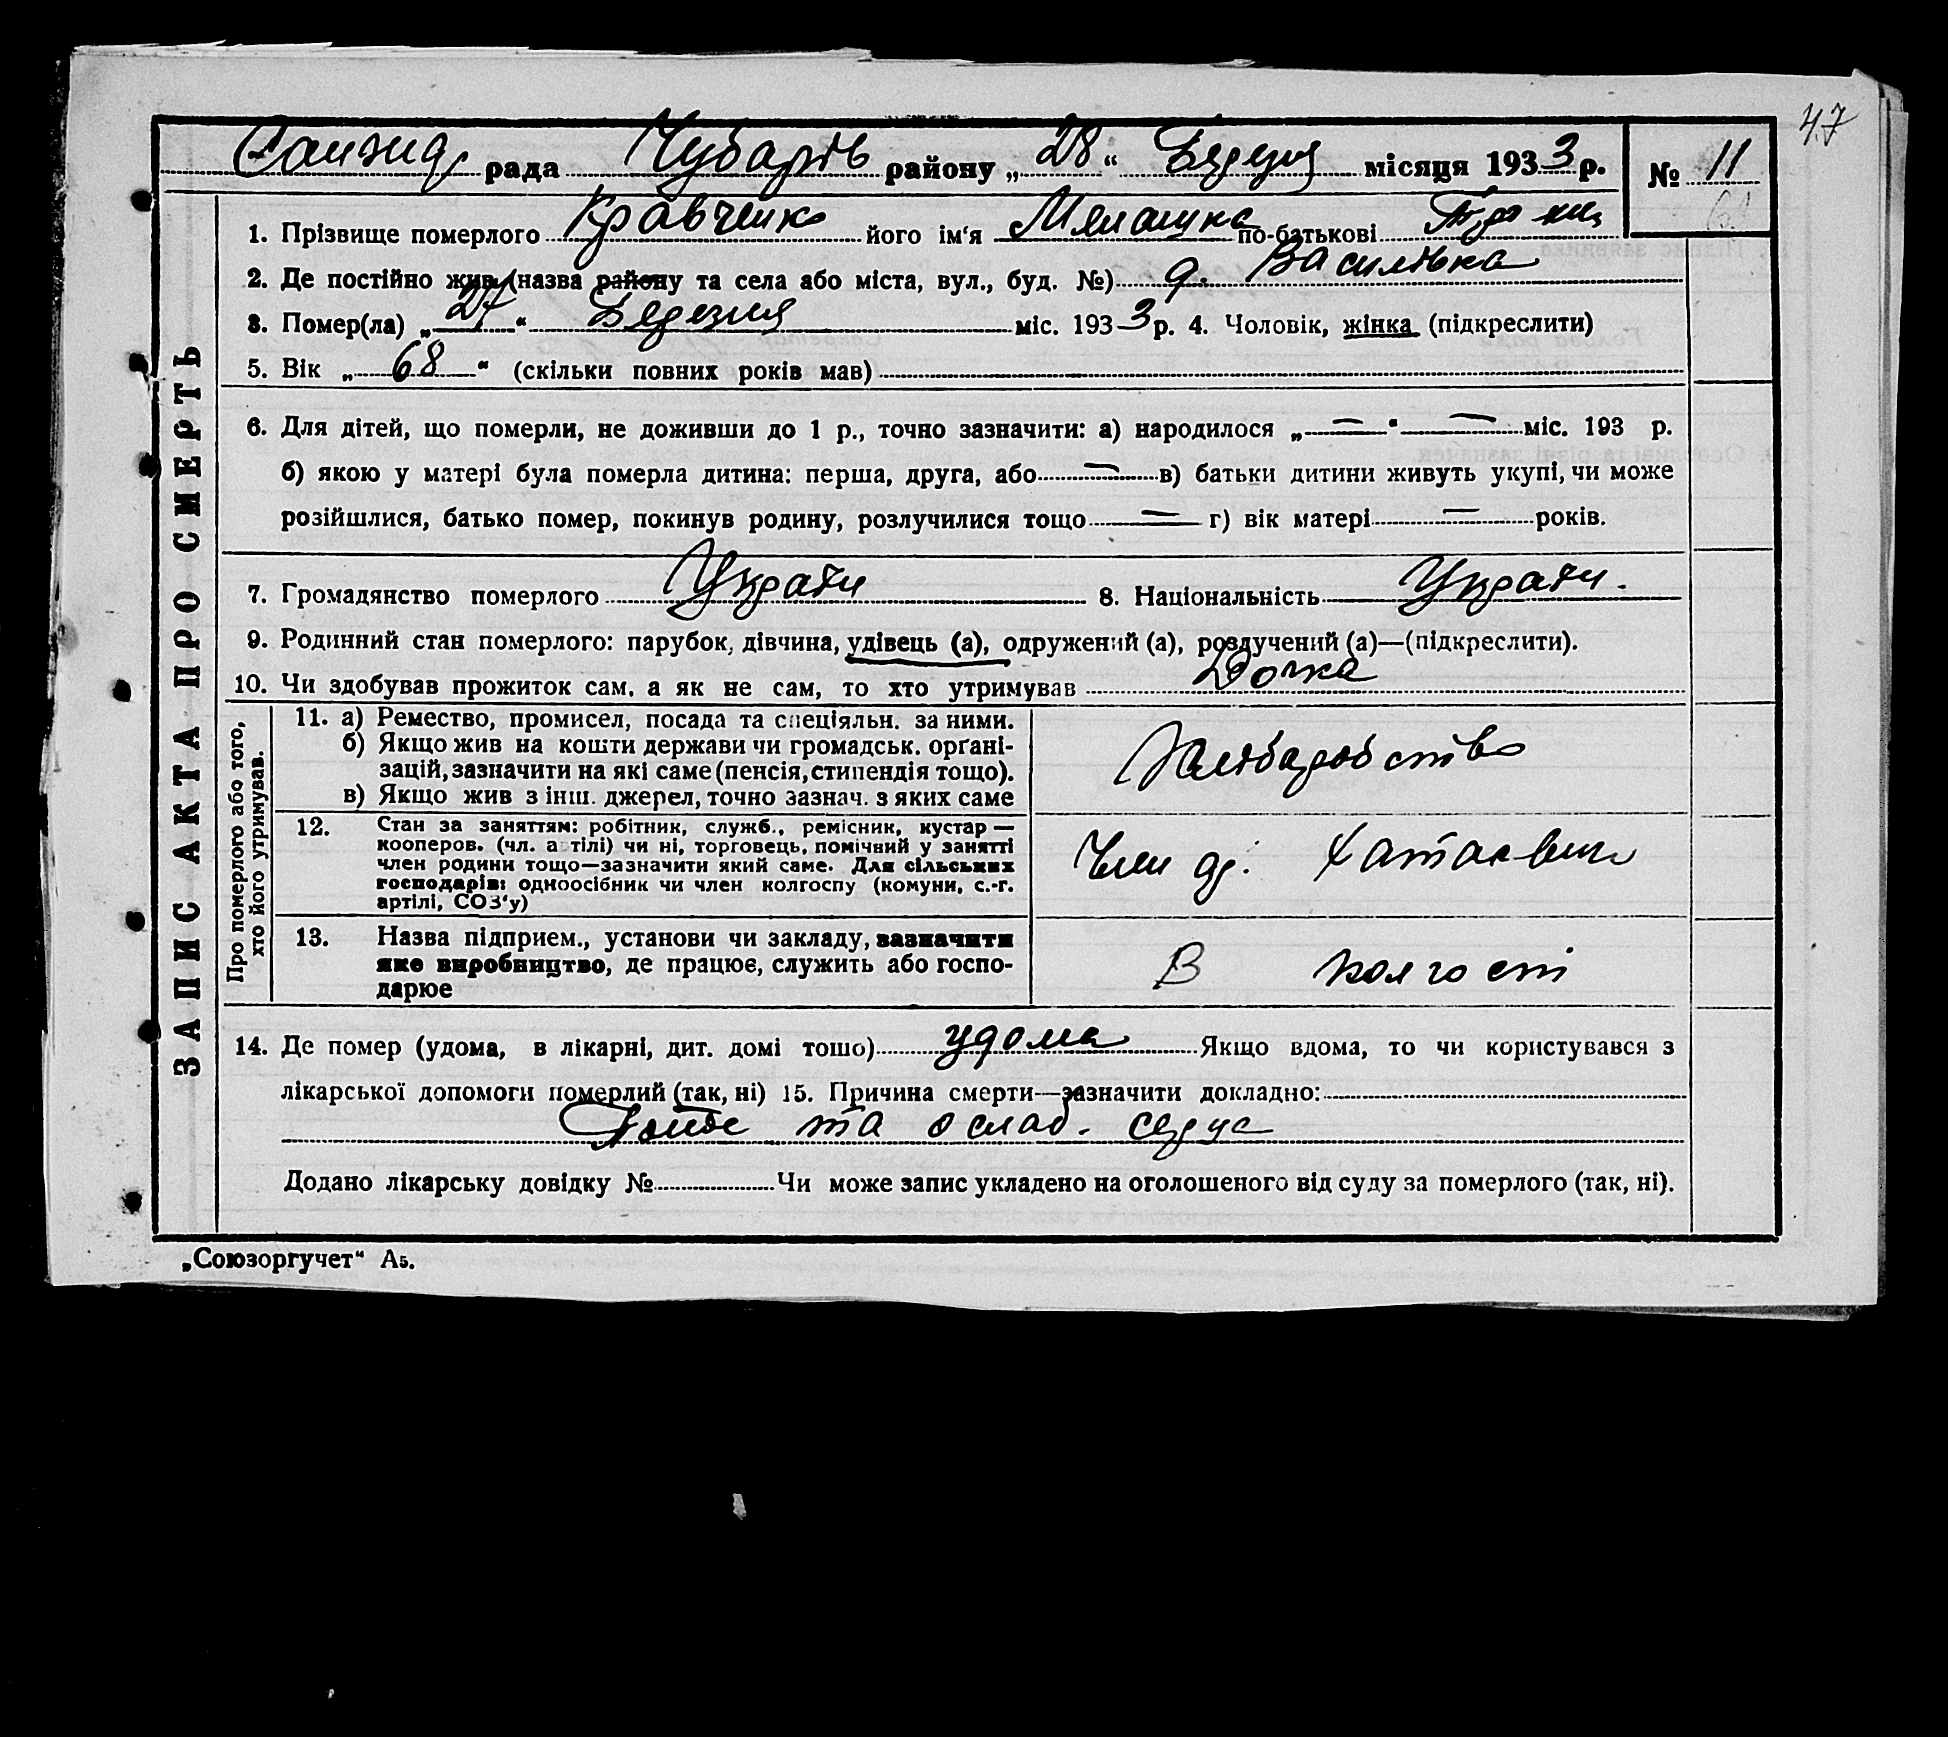 47
рада Чубарів району „28“ Березня місяця 1933 р. № 11
ЗАПИС АКТА ПРО СМЕРТЬ
1. Прізвище померлого Кравченко його ім'я по-батькові
2. Де постійно жив (назва району та села або міста, вул., буд. №) с. Василівка
3. Помер(ла) „27“ Березня міс. 1933 р. 4. Чоловік, жінка (підкреслити)
5. Вік „68“ (скільки повних років мав)
6. Для дітей, що померли, не доживши до 1 р., точно зазначити: а) народилося „—“ — міс. 193 р.
б) якою у матері була померла дитина: перша, друга, або — в) батьки дитини живуть укупі, чи може
розійшлися, батько помер, покинув родину, розлучилися тощо — г) вік матері — років.
7. Громадянство померлого 8. Національність
9. Родинний стан померлого: парубок, дівчина, удівець (а), одружений (а), розлучений (а)—(підкреслити).
10. Чи здобував прожиток сам, а як не сам, то хто утримував Дочка
Про померлого або того,
хто його утримував.
11. а) Ремество, промисел, посада та спеціяльн. за ними.
б) Якщо жив на кошти держави чи громадськ. орґані-
зацій, зазначити на які саме (пенсія, стипендія тощо).
в) Якщо жив з інш. джерел, точно зазнач. з яких саме
12. Стан за заняттям: робітник, служб., ремісник, кустар—
кооперов. (чл. артілі) чи ні, торговець, помічний у занятті
член родини тощо—зазначити який саме. Для сільських
господарів: одноосібник чи член колгоспу (комуни, с.-г.
артілі, СОЗ'у)
Член
13. Назва підприєм., установи чи закладу, зазначити
яке виробництво, де працює, служить або госпо-
дарює
В колгоспі
14. Де помер (удома, в лікарні, дит. домі тощо) удома Якщо вдома, то чи користувався з
лікарської допомоги померлий (так, ні) 15. Причина смерти—зазначити докладно:
та ослаб. серця
Додано лікарську довідку № Чи може запис укладено на оголошеного від суду за померлого (так, ні).
„Союзоргучет“ А5.